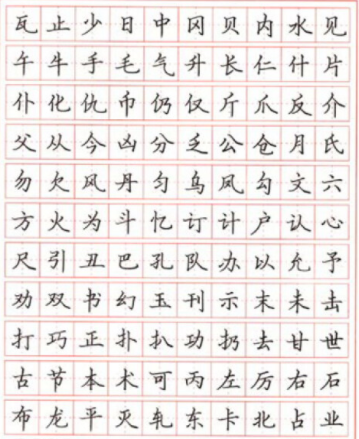 瓦止少日中冈贝内水见
午牛手毛气升长仁什片
仆化仇币仍仅斤爪反介
父从今凶分乏公仓月氏
勿欠风丹匀乌凤勾文六
方火为斗忆订计户认心
尺引丑巴孔队办以允予
劝双书幻玉刊示末未击
打巧正扑扒功扔去甘世
古节本术可丙左厉右石
布龙平灭轧东卡北占业